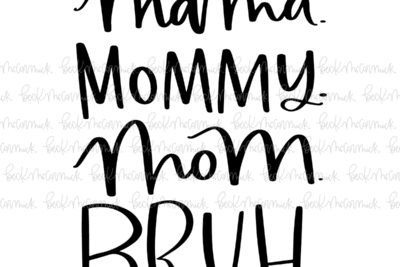 mama.
MOMMY.
mom.
BRUH